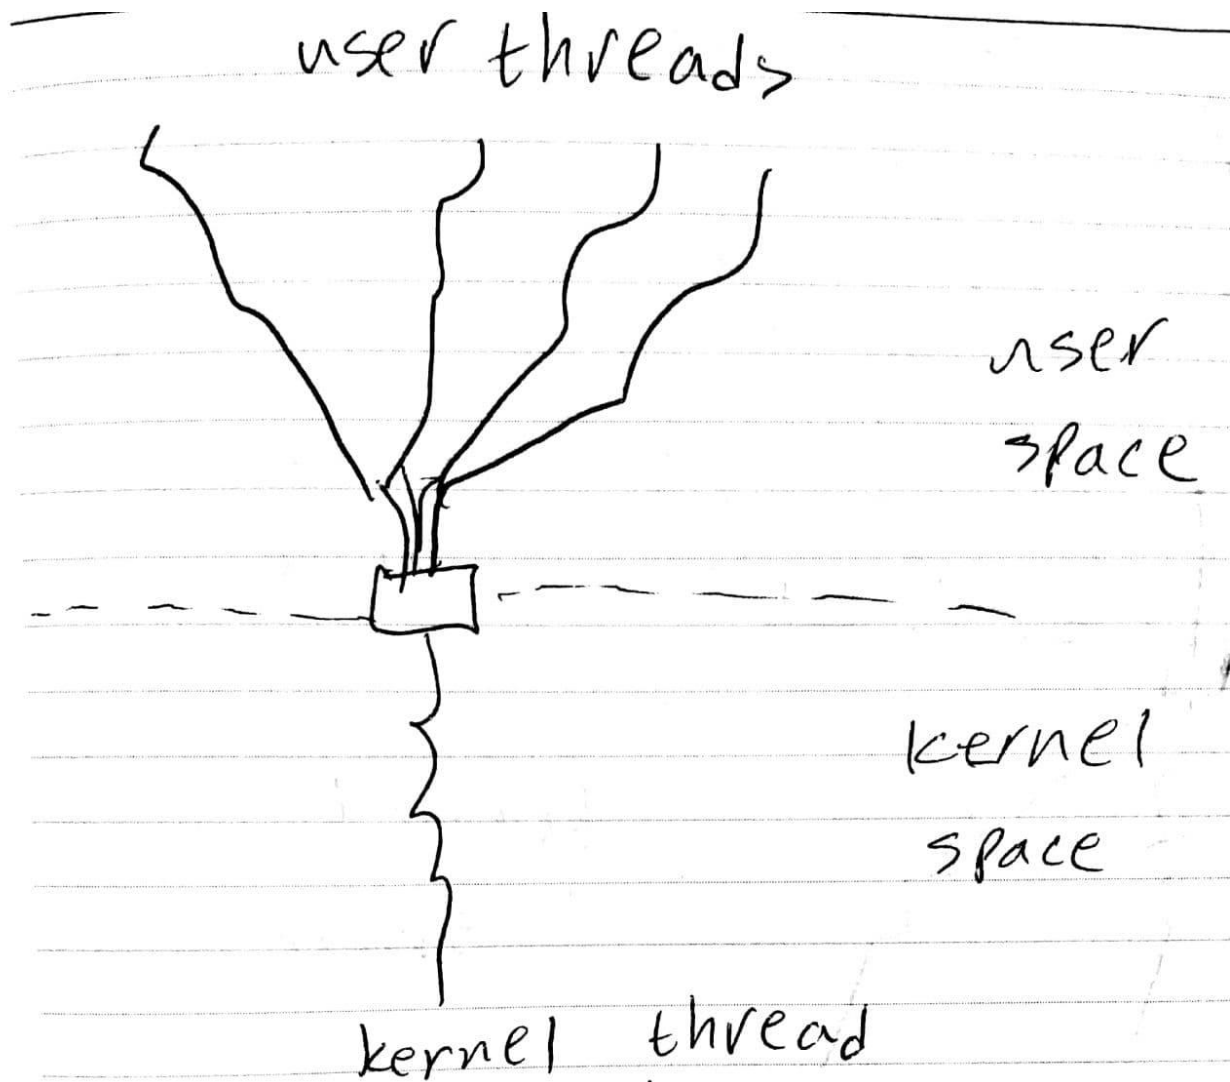 user threads
user
space
kernel
space
kernel thread